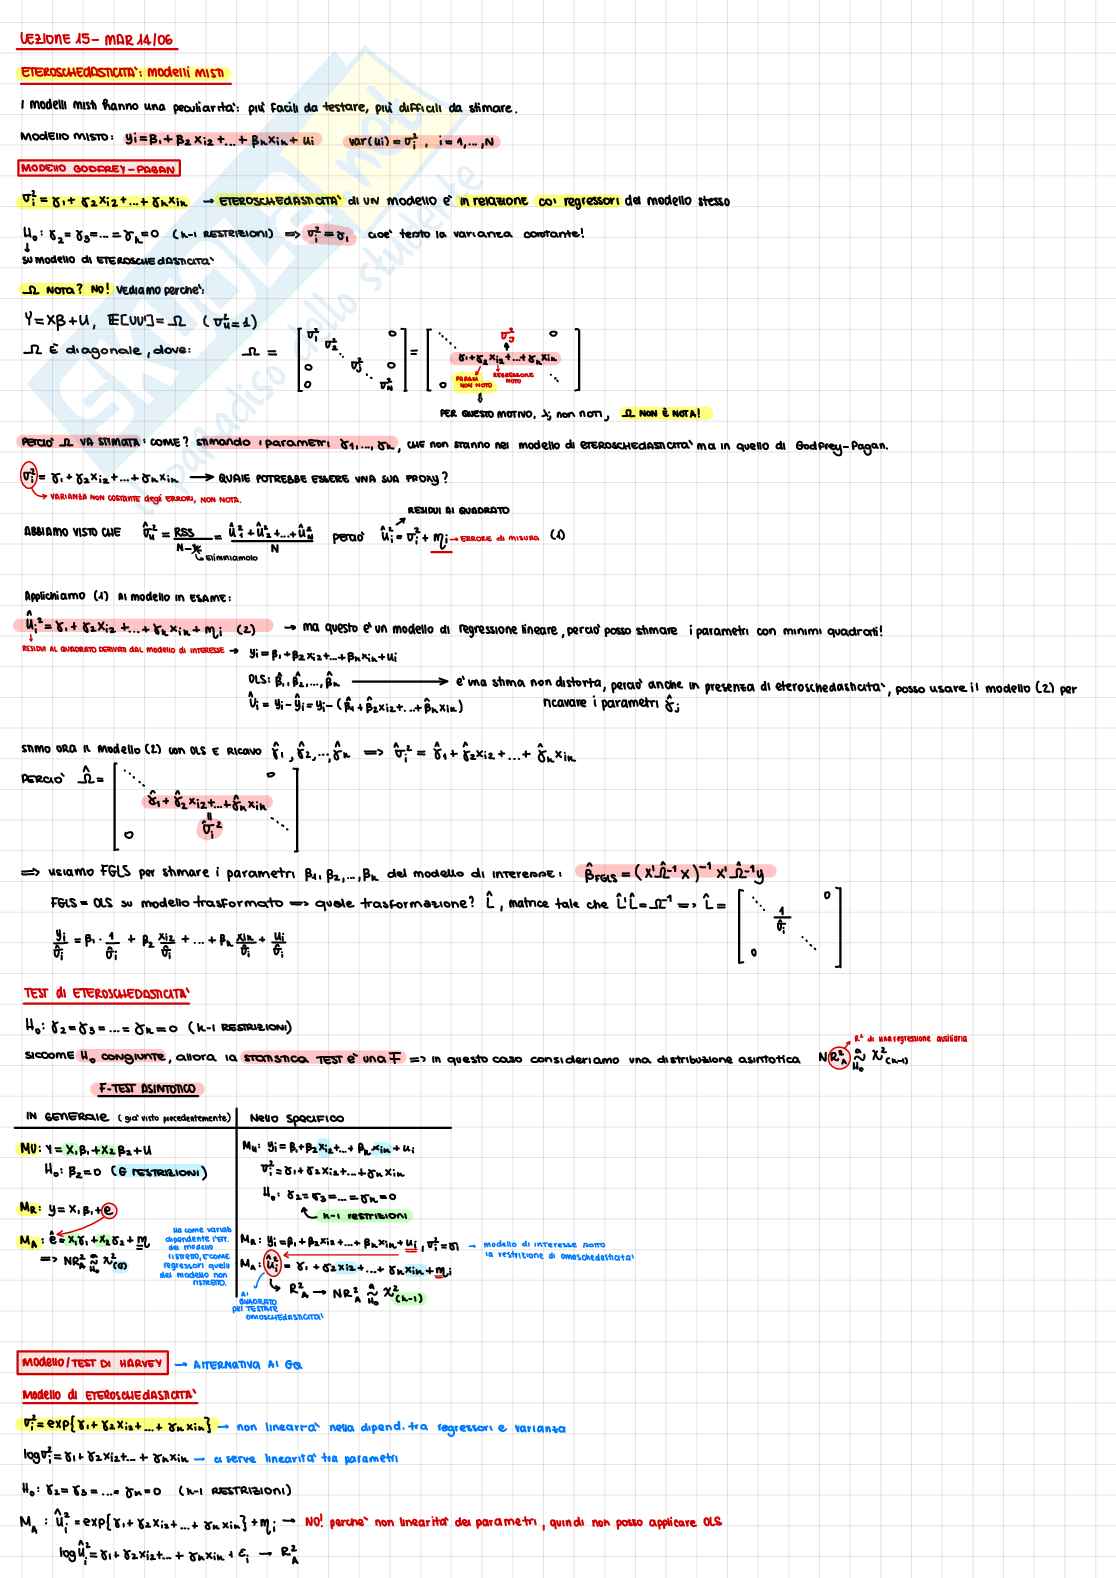 LEZIONE 15 - MAR 14/06
ETEROSCHEDASTICITA': modelli misti
I modelli misti hanno una peculiarità: piu' facili da testare, piu' difficili da stimare.
MODELLO MISTO: yi = β1 + β2 xi2 + ... + βk xik + ui    var(ui) = σi², i = 1, ..., N
MODELLO GODFREY-PAGAN
σi² = γ1 + γ2 xi2 + ... + γk xik → ETEROSCHEDASTICITA' di UN modello e' in relazione coi regressori del modello stesso
H0: γ2 = γ3 = ... = γk = 0 (k-1 RESTRIZIONI) ⇒ σi² = γ1 cioe' testo la varianza costante!
↓
su modello di ETEROSCHEDASTICITA'
Ω NOTA? NO! Vediamo perche':
Y = Xβ + U, E[UU'] = Ω (σu² = 1)
Ω È diagonale, dove: Ω = [σ1² σ2² σj² σN² 0 0 0] = [γ1 + γ2 xi2 + ... + γk xik 0 0]
σj²
PARAM NON NOTO
REGRESSORE NOTO
PER QUESTO MOTIVO, γj non noti, Ω NON È NOTA!
PERCIO' Ω VA STIMATA: COME? stimando i parametri γ1, ..., γk, CHE non stanno nel modello di ETEROSCHEDASTICITA' ma in quello di Godfrey-Pagan.
σi² = γ1 + γ2 xi2 + ... + γk xik → QUALE POTREBBE ESSERE UNA SUA PROXY?
→ VARIANZA NON COSTANTE degli ERRORI, NON NOTA.
RESIDUI AL QUADRATO
ABBIAMO VISTO CHE σ̂u² = RSS / N-k = û1² + û2² + ... + ûN² / N percio' ûi² = σi² + ηi → ERRORE DI MISURA (1)
eliminiamolo
Applichiamo (1) Al modello in ESAME:
ûi² = γ1 + γ2 xi2 + ... + γk xik + ηi (2) → ma questo e' un modello di regressione lineare, percio' posso stimare i parametri con minimi quadrati!
RESIDUI AL QUADRATO DERIVATI DAL modello di INTERESSE → yi = β1 + β2 xi2 + ... + βk xik + ui
OLS: β̂1, β̂2, ..., β̂k → e' una stima non distorta, percio' anche in presenza di eteroschedasticita', posso usare il modello (2) per
ûi = yi - ŷi = yi - (β̂1 + β̂2 xi2 + ... + β̂k xik)    ricavare i parametri γ̂j
STIMO ORA IL Modello (2) con OLS E RICAVO γ̂1, γ̂2, ..., γ̂k ⇒ σ̂i² = γ̂1 + γ̂2 xi2 + ... + γ̂k xik
PERCIO' Ω̂ = [γ̂1 + γ̂2 xi2 + ... + γ̂k xik = σ̂i² 0 0]
⇒ usiamo FGLS per stimare i parametri β1, β2, ..., βk del modello di interesse: β̂FGLS = (X'Ω̂⁻¹X)⁻¹ X'Ω̂⁻¹y
FGLS = OLS su modello trasformato ⇒ quale trasformazione? L̂, matrice tale che L̂'L̂ = Ω̂⁻¹ ⇒ L̂ = [1/σ̂i 0 0]
yi/σ̂i = β1 · 1/σ̂i + β2 xi2/σ̂i + ... + βk xik/σ̂i + ui/σ̂i
TEST di ETEROSCHEDASTICITA'
H0: γ2 = γ3 = ... = γk = 0 (k-1 RESTRIZIONI)
R² di una regressione ausiliaria
SICCOME H0 CONGIUNTE, allora la STATISTICA TEST e' una F ⇒ in questo caso consideriamo una distribuzione asintotica N R²A ~ᵃH0 χ²(k-1)
F-TEST ASINTOTICO
IN GENERALE (gia' visto precedentemente)
MU: Y = X1β1 + X2β2 + U
H0: β2 = 0 (G RESTRIZIONI)
MR: y = X1β1 + e
MA: ê = X1γ1 + X2γ2 + η
⇒ NR²A ~ᵃH0 χ²(G)
Ha come variab
dipendente l'err.
del modello
ristretto, e come
regressori quelli
del modello non
ristretto.
Nello SPECIFICO
MU: yi = β1 + β2 xi2 + ... + βk xik + ui
σi² = γ1 + γ2 xi2 + ... + γk xik
H0: γ2 = γ3 = ... = γk = 0
k-1 RESTRIZIONI
MR: yi = β1 + β2 xi2 + ... + βk xik + ui, σi² = γ1 → modello di interesse sotto
la restrizione di omoschedasticita'
MA: ûi² = γ1 + γ2 xi2 + ... + γk xik + ηi
→ R²A → NR²A ~ᵃH0 χ²(k-1)
Al
QUADRATO
PER TESTARE
OMOSCHEDASTICITA'
Modello/TEST DI HARVEY → ALTERNATIVA Al GQ
Modello di ETEROSCHEDASTICITA'
σi² = exp{γ1 + γ2 xi2 + ... + γk xik} → non linearita' nella dipend. tra regressori e varianza
log σi² = γ1 + γ2 xi2 + ... + γk xik → ci serve linearita' tra parametri
H0: γ2 = γ3 = ... = γk = 0 (k-1 RESTRIZIONI)
MA: ûi² = exp{γ1 + γ2 xi2 + ... + γk xik} + ηi → NO! perche' non linearita' dei parametri, quindi non posso applicare OLS
log ûi² = γ1 + γ2 xi2 + ... + γk xik + εi → R²A